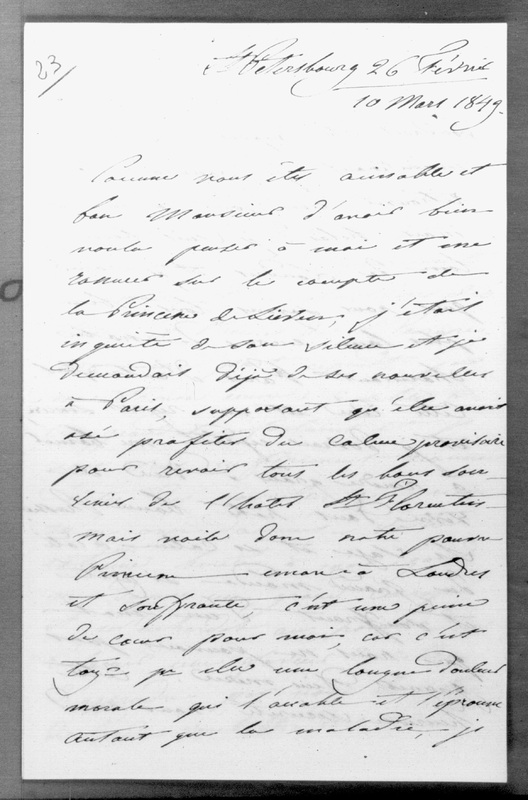 23/
St Petersbourg 26 Février
10 Mars 1849.
Comme vous êtes aimable et
bon Monsieur d'avoir bien
voulu penser à moi et me
rassurer sur le compte de
la Princesse de Lieven, j'étais
inquiète de son silence et je
demandais déjà de ses nouvelles
à Paris, supposant qu'elle avait
osé profiter du calme provisoire
pour revoir tous les bons sou-
venirs de l'hotel St Florentin
mais voila donc notre pauvre
Princesse encore à Londres
et souffrante, c'est une peine
de cœur pour moi, car c'est
touj. pr elle une longue douleur
morale qui l'accable et l'éprouve
autant que la maladie, je